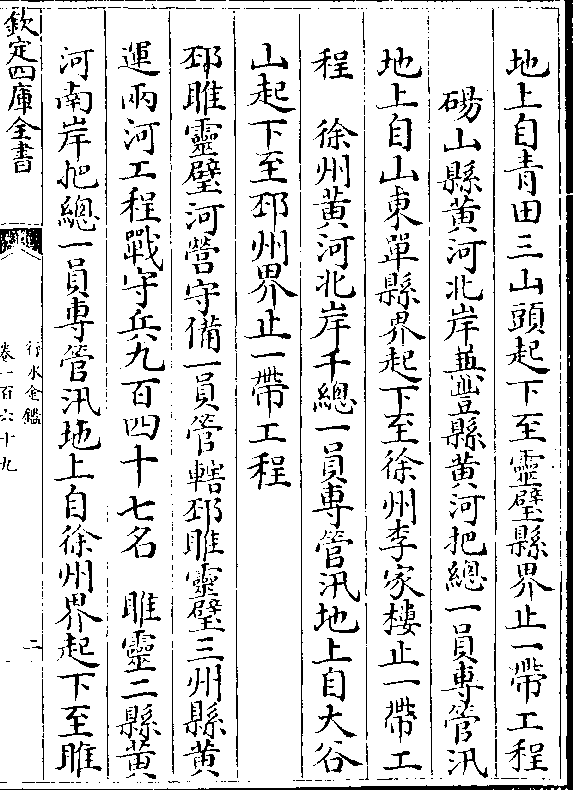 地上自青田三山頭起下至靈璧縣界止一帶工程
碭山縣黄河北岸兼豐縣黄河把總一員專管汛
地上自山東單縣界起下至徐州李家樓止一帶工
程　徐州黄河北岸千總一員專管汛地上自大谷
山起下至邳州界止一帶工程
邳睢靈璧河營守備一員管轄邳睢靈璧三州縣黄
運兩河工程戰守兵九百四十七名　睢靈二縣黄
河南岸把總一員專管汛地上自徐州界起下至睢
欽定四庫全書
行水金鑑
卷一百六十九
二